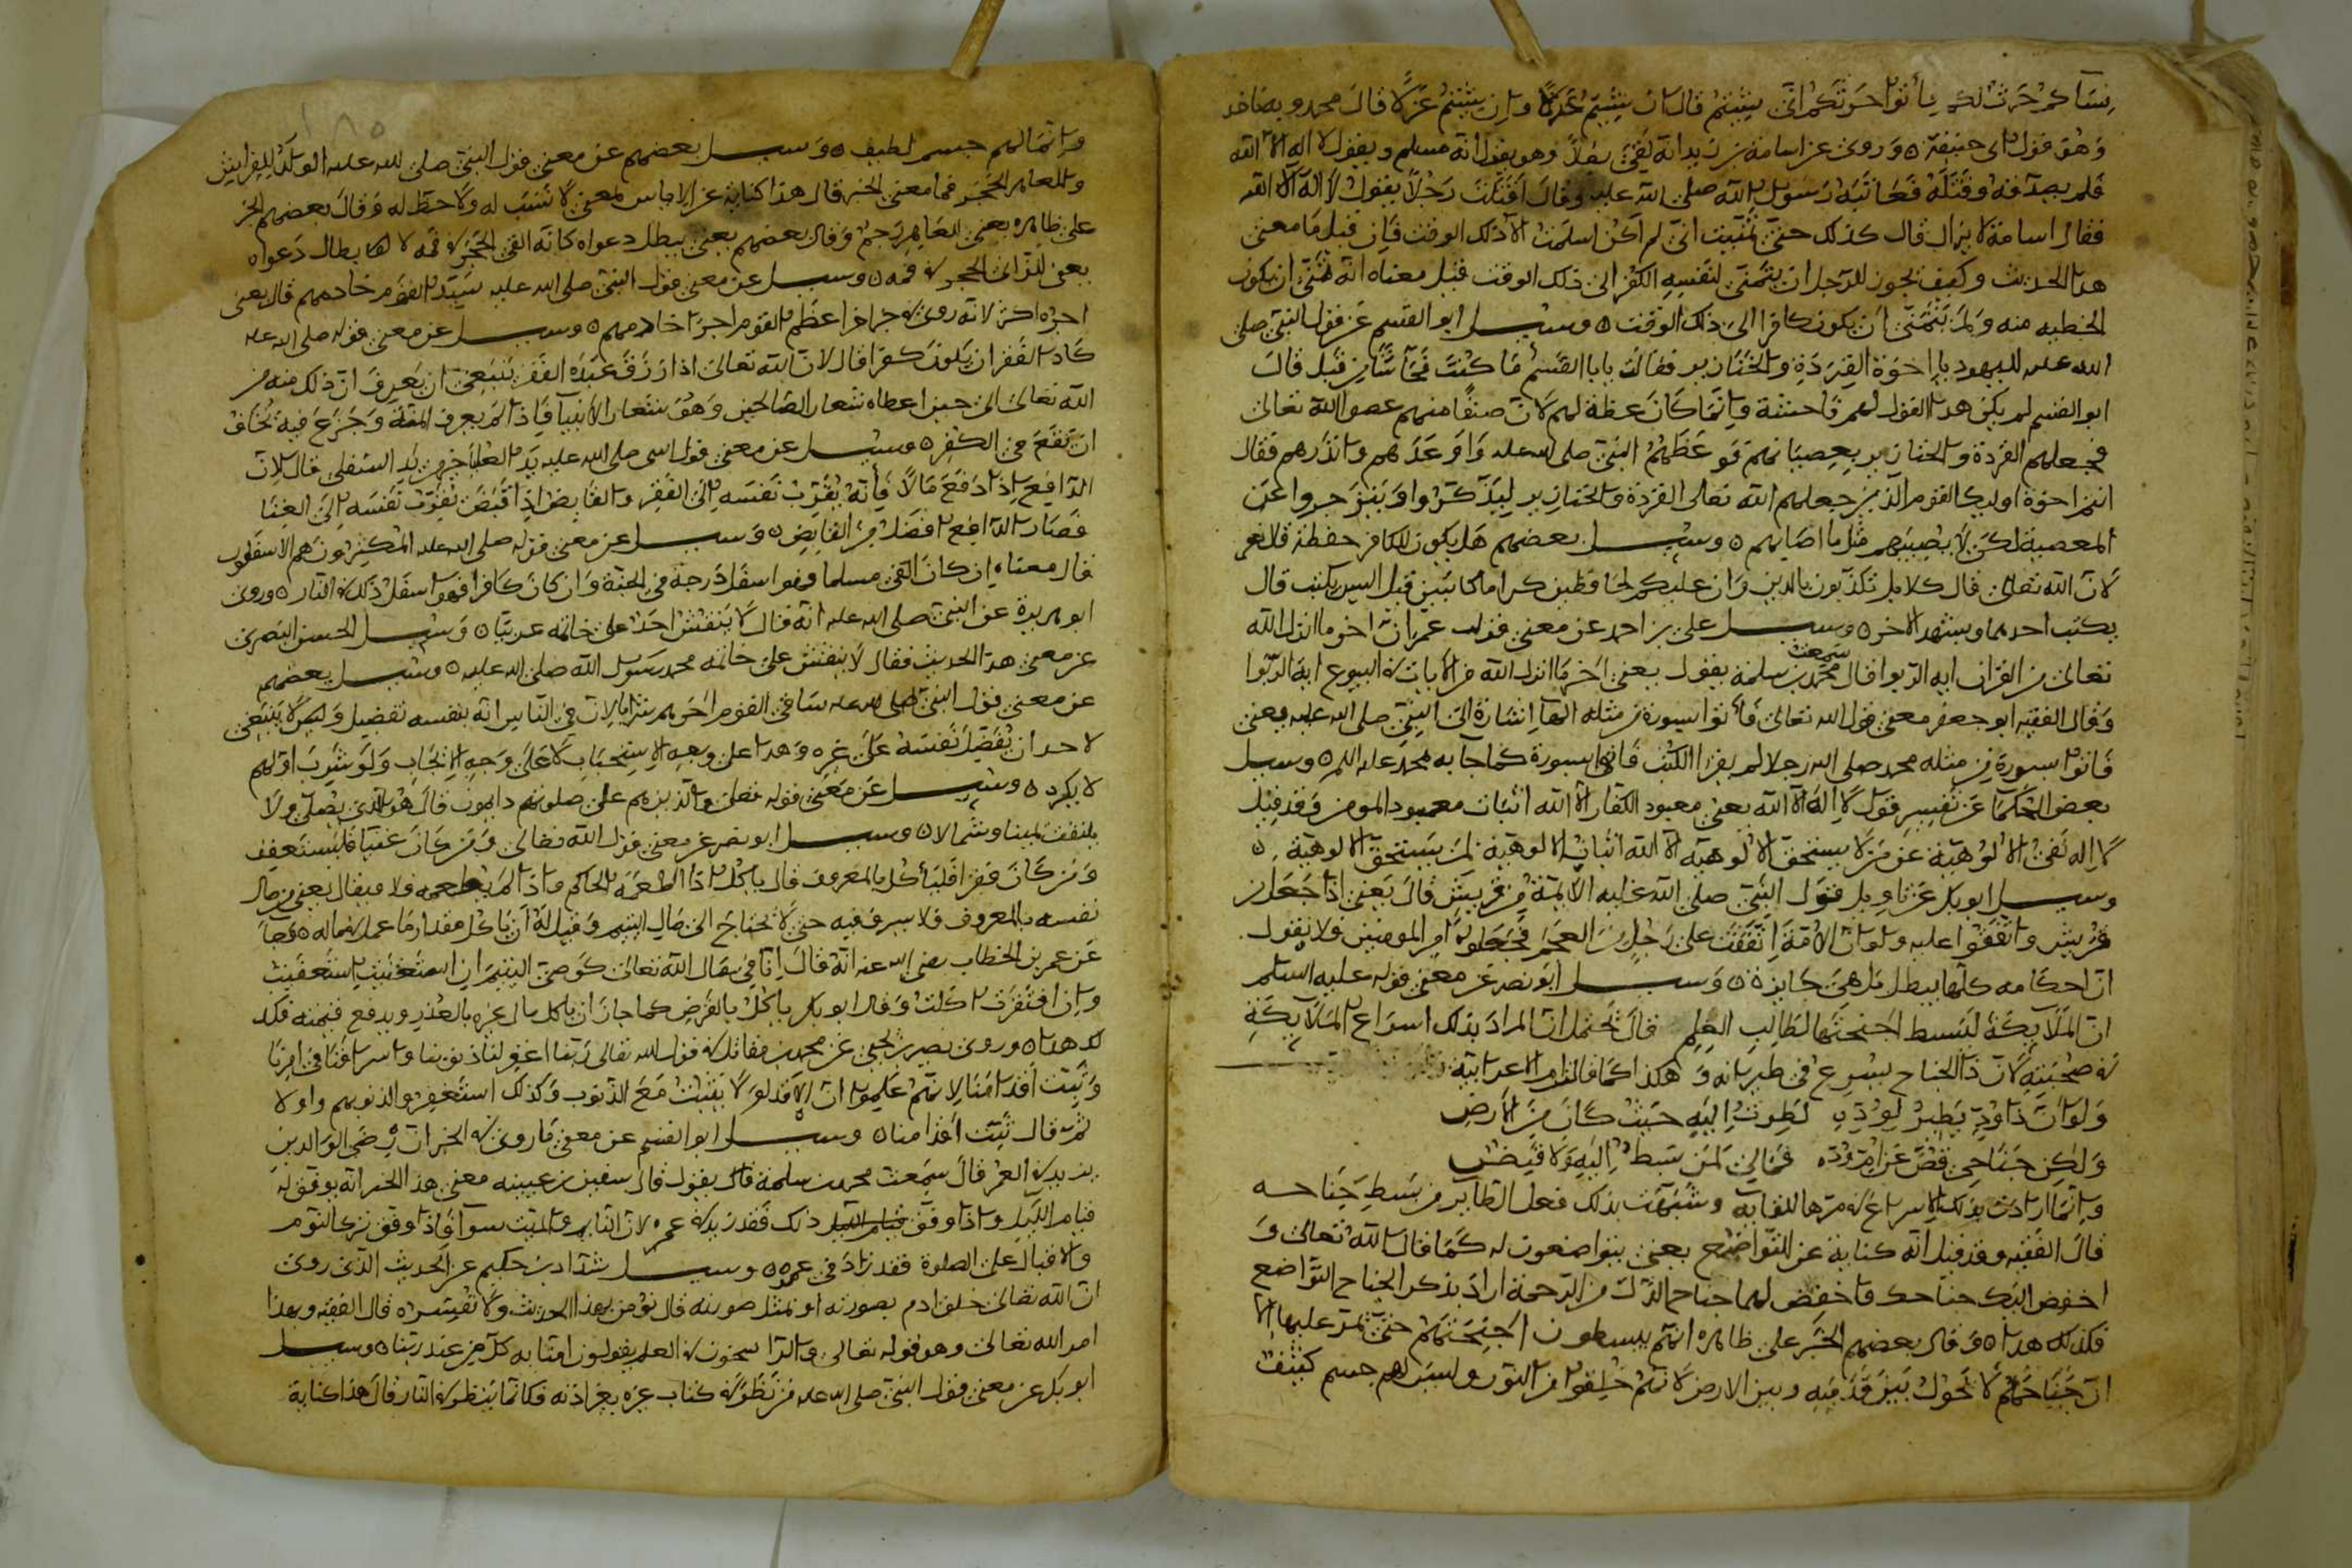 نساكم حرث لكم فأتوا حرثكم انى شيتم قال ان شيتم عزلا وان شيتم غير عزلا قال محمد وبه ناخذ
وهو قول ابى حنيفة ٥ وروى عن اسامة بن زيد انه لقى رجلا وهو يقول انه مسلم ويقول لا اله الا الله
فلم يصدقه وقتله فعاتبه رسول الله صلى الله عليه وقال اقتلت رجلا يقول لا اله الا الله
فقال اسامة لا يزال قال كذلك حتى تمنيت انى لم اكن اسلمت الا ذلك الوقت فان قيل ما معنى
هذا الحديث وكيف يجوز للرجل ان يتمنى لنفسه الكفر الى ذلك الوقت قيل معناه انه تمنى ان يكون
الخطيه منه ولم يتمنى ان يكون كافرا الى ذلك الوقت ٥ وسيل ابو القسم عن قول النبى صلى
الله عليه لليهود يا اخوة القردة والخنازير فقالت يابا القسم ما كنت فحاشا من قبل قال
ابو القسم لم يكن هذا القول لهم فاحشة وانما كان عظة لهم لان صنفا منهم عصوا الله تعالى
فجعلهم القردة والخنازير بعصيانهم فوعظهم النبى صلى الله عليه واوعدهم وانذرهم فقال
انتم اخوة اوليك القوم الذين جعلهم الله تعالى القردة والخنازير ليتذكروا وينزجروا عن
المعصية لكى لا يصيبهم مثل ما اصابهم ٥ وسيل بعضهم هل يكون للكافر حفظة قال نعم
لان الله تعالى قال كلا بل تكذبون بالدين وان عليكم لحافظين كراما كاتبين قيل اليس يكتب قال
يكتب احدهما ويشهد الاخر ٥ وسيل على بن احمد عن معنى قول عمر ان اخر ما انزل الله
تعالى من القران ايه الربوا قال سمعت محمد بن سلمة يقول يعنى اخر ما انزل الله من الايات فى البيوع اية الربوا
وقال الفقيه ابو جعفر معنى قول الله تعالى فأتوا بسورة من مثله الهآ اشارة الى النبى صلى الله عليه يعنى
فاتوا بسورة من مثله محمد صلى الله رجلا لم يقرا الكتب فاتها بسورة كما جا به محمد عليه السلم ٥ وسيل
بعض الحكما عن تفسير قول لا اله الا الله يعنى معبود الكفار الا الله اثبات معبود المومن وقد قيل
لا اله نفى الالوهية عن من لا يستحق الالوهية الا الله اثبات الالوهية لمن يستحق الالوهية ٥
وسيل ابو بكر عن تاويل قول النبى صلى الله عليه الايمة من قريش قال يعنى اذا جعل من
قريش واتفقوا عليه ولو ان الامة اتفقت على رجل من العجم فجعلوه امير المومنين فلا نقول
ان احكامه كلها يبطل بل هى جايزة ٥ وسيل ابو نصر عن معنى قوله عليه السلم
ان الملايكة لتبسط اجنحتها لطالب العلم قال يحتمل ان المراد بذلك اسراع الملايكة
فى صحبته لان ذا الجناح يسرع فى طيرانه وهكذا كما قالت الاعرابية
ولو ان ذا ود يطير لوده لطرت اليه حيث كان من الارض
ولكن جناحى قص عن امر وده فمالى لمن بسط اليه ولا قبض
وانما ارادت بذلك الاسراع فى مرها للقايه وشبهت بذلك فعل الطاير من بسط جناحه
قال الفقيه وقد قيل انه كناية عن التواضع يعنى يتواضعون له كما قال الله تعالى و
اخفض اليك جناحك واخفض لهما جناح الذل من الرحمة اراد بذكر الجناح التواضع
فكذلك هذا ٥ وقال بعضهم الخبر على ظاهره انهم يبسطون اجنحتهم حتى تمر عليها الا
ان جناحهم لا تحول بين قدميه وبين الارض لانهم خلقوا من النور وليس لهم جسم كثيف
وانما لهم جسم لطيف ٥ وسيل بعضهم عن معنى قول النبى صلى الله عليه الولد للفراش
وللعاهر الحجر فما معنى الحجر قال هذا كناية عن الاياس لمعنى لا نسب له ولا حظ له وقال بعضهم الحجر
على ظاهره يعنى العاهر يرجم وقال بعضهم يعنى يبطل دعواه كانه القى الحجر فى فمه لابطال دعواه
يعنى للزانى الحجر فى فمه ٥ وسيل عن معنى قول النبى صلى الله عليه سيد القوم خادمهم قال يعنى
اجره اكثر لانه روى فى خبر اخر اعظم القوم اجرا خادمهم ٥ وسيل عن معنى قوله صلى الله عليه
كاد الفقر ان يكون كفرا قال لان الله تعالى اذا رزق عبده الفقر ينبغى ان يعرف ان ذلك منه من
الله تعالى الى حين اعطاه شعار الصالحين وهو شعار الانبيا فاذا لم يعرف المنة وجزع فيه يخاف
ان يقع فى الكفر ٥ وسيل عن معنى قول النبى صلى الله عليه يد العليا خير من يد السفلى قال لان
الدافع اذا دفع مالا فانه يقرب نفسه الى الفقر والقابض اذا قبض يقرب نفسه الى الغنا
فصار الدافع افضل من القابض ٥ وسيل عن معنى قوله صلى الله عليه المكثرون هم الاسفلون
قال معناه ان كان الغنى مسلما فهو اسفل درجة فى الجنة وان كان كافرا فهو اسفل درك فى النار ٥ وروى
ابو هريرة عن النبى صلى الله عليه انه قال لا ينقش احد على خاتمه عربيا ٥ وسيل الحسن البصرى
عن معنى هذا الحديث فقال لا ينقش على خاتمه محمد رسول الله صلى الله عليه ٥ وسيل بعضهم
عن معنى قول النبى صلى الله عليه ساقى القوم اخرهم شربا لان فى التاثير انه بنفسه تفضيل وليس ينبغى
لاحد ان يفضل نفسه على غيره وهذا على وجه الاستحباب لا على وجه الايجاب ولو شرب اولهم
لا يكره ٥ وسيل عن معنى قوله تعالى والذين هم على صلوتهم دايمون قال هو الذى يصلى ولا
يلتفت يمينا وشمالا ٥ وسيل ابو نصر عن معنى قول الله تعالى ومن كان غنيا فليستعفف
ومن كان فقيرا فليأكل بالمعروف قال ياكل اذا اطعمه الحاكم واذا لم يطعمه فلا ويقال يعنى من مال
نفسه بالمعروف فلا يسرف فيه حتى لا يحتاج الى مال اليتيم وقيل له ان ياكل مقدار ما عمل فى ماله ٥ وجا
عن عمر بن الخطاب رضى الله عنه انه قال انا فى مال الله تعالى كوصى اليتيم ان استغنيت استعففت
وان افتقرت اكلت وقال ابو بكر ياكل بالقرض كما جاز ان ياكل مال غيره بالعذر ويدفع قيمته فكذ
لك هذا ٥ وروى نصير بن يحيى عن محمد بن مقاتل فى قول الله تعالى ربنا اغفر لنا ذنوبنا واسرافنا فى امرنا
وثبت اقدامنا لانهم علموا ان الاقدام لا يثبت مع الذنوب وكذلك استغفروا لذنوبهم واولا
ثم قال ثبت اقدامنا ٥ وسيل ابو القسم عن معنى ما روى فى الخبر ان رضى الوالدين
يزيد فى العمر قال سمعت محمد بن سلمة قال يقول قال سفين بن عيينه معنى هذا الخبر انه يوفق له
قيام الليل واذا وفق ذلك فقد زيد فى عمره لان النايم والميت سوا فاذا وفق ترك النوم
والاقبال على الصلوة فقد زاد فى عمره ٥ وسيل شداد بن حكيم عن الحديث الذى روى
ان الله تعالى خلق ادم بصورته او بمثل صورته قال نؤمن بهذا الحديث ولا نفسره قال الفقيه وبهذا
امر الله تعالى وهو قوله تعالى والراسخون فى العلم يقولون امنا به كل من عند ربنا ٥ وسيل
ابو بكر عن معنى قول النبى صلى الله عليه من نظر فى كتاب غيره بغير اذنه فكانما ينظر فى النار قال هذا كناية